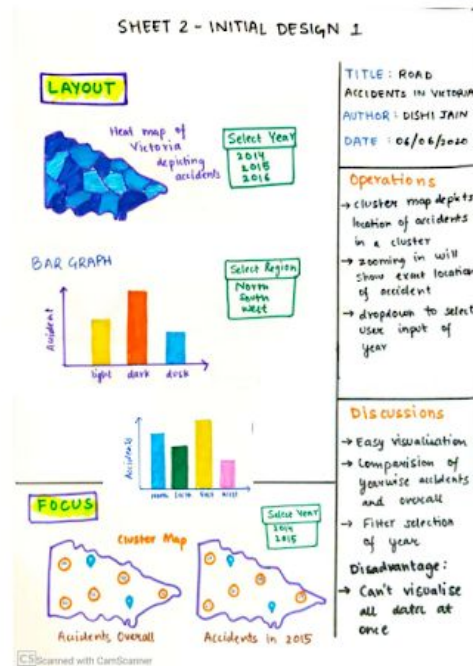 SHEET 2 - INITIAL DESIGN 1
LAYOUT
Heat map of
Victoria
depicting
accidents
Select Year
2014
2015
2016
BAR GRAPH
Accident
light dark dusk
Select Region
North
South
West
Accidents
North
West
FOCUS
Cluster Map
Select Year
2014
2015
Accidents Overall
Accidents In 2015
TITLE : ROAD
ACCIDENTS IN VICTORIA
AUTHOR : DISHI JAIN
DATE : 06/06/2020
Operations
→ cluster map depicts
location of accidents
in a cluster
→ zooming in will
show exact location
of accident
→ dropdown to select
user input of
year
Discussions
→ Easy visualisation
→ Comparision of
yearwise accidents
and overall
→ Filter selection
of year
Disadvantage :
→ Can't visualise
all data at
once
CS Scanned with CamScanner